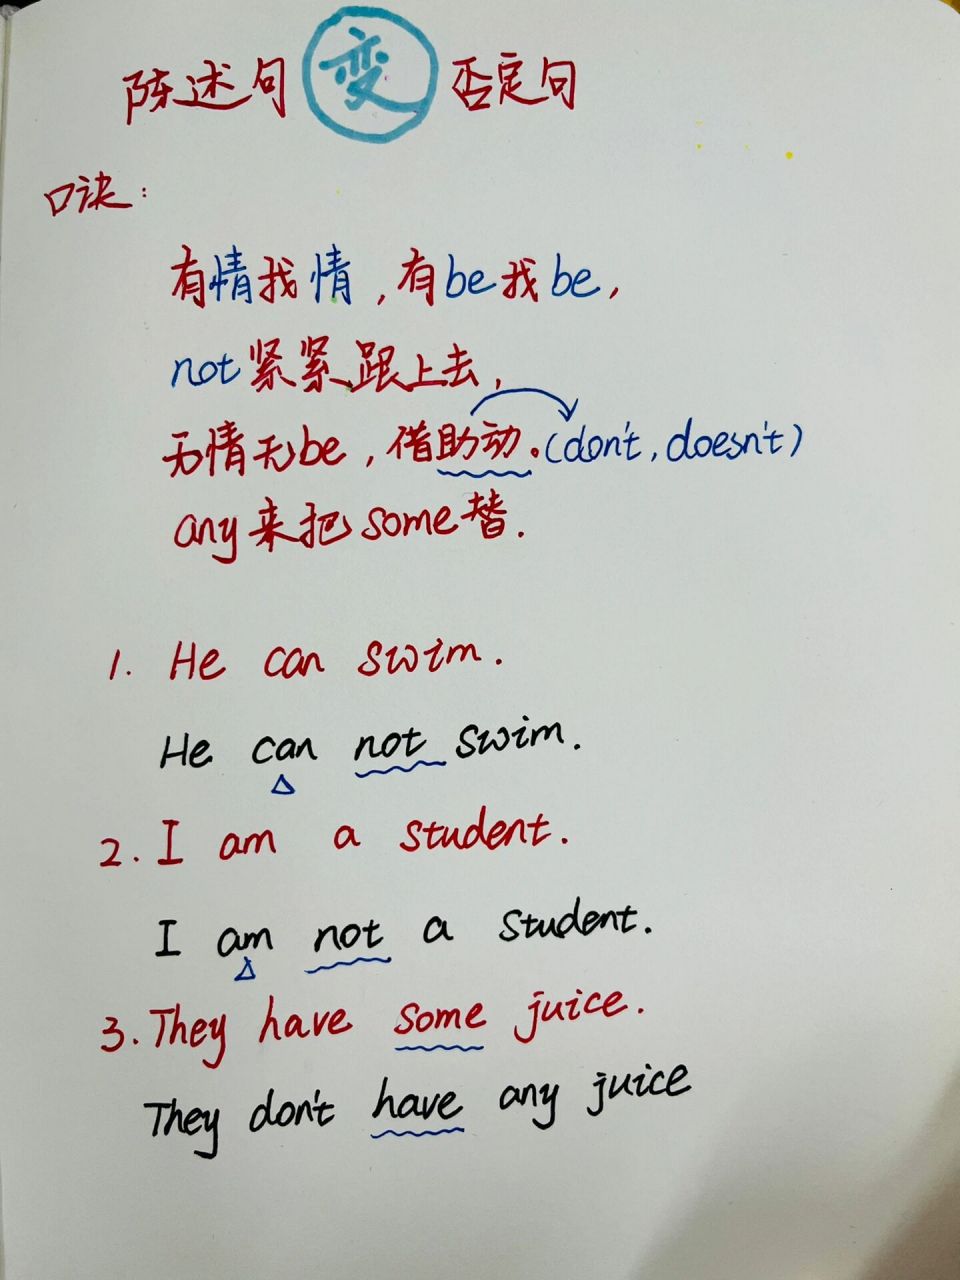 陈述句变否定句
口诀:
有情找情,有be找be,
not紧紧跟上去,
无情无be,借助动.(don't,doesn't)
any来把some替.
1. He can swim.
He can not swim.
2. I am a student.
I am not a student.
3. They have some juice.
They don't have any juice